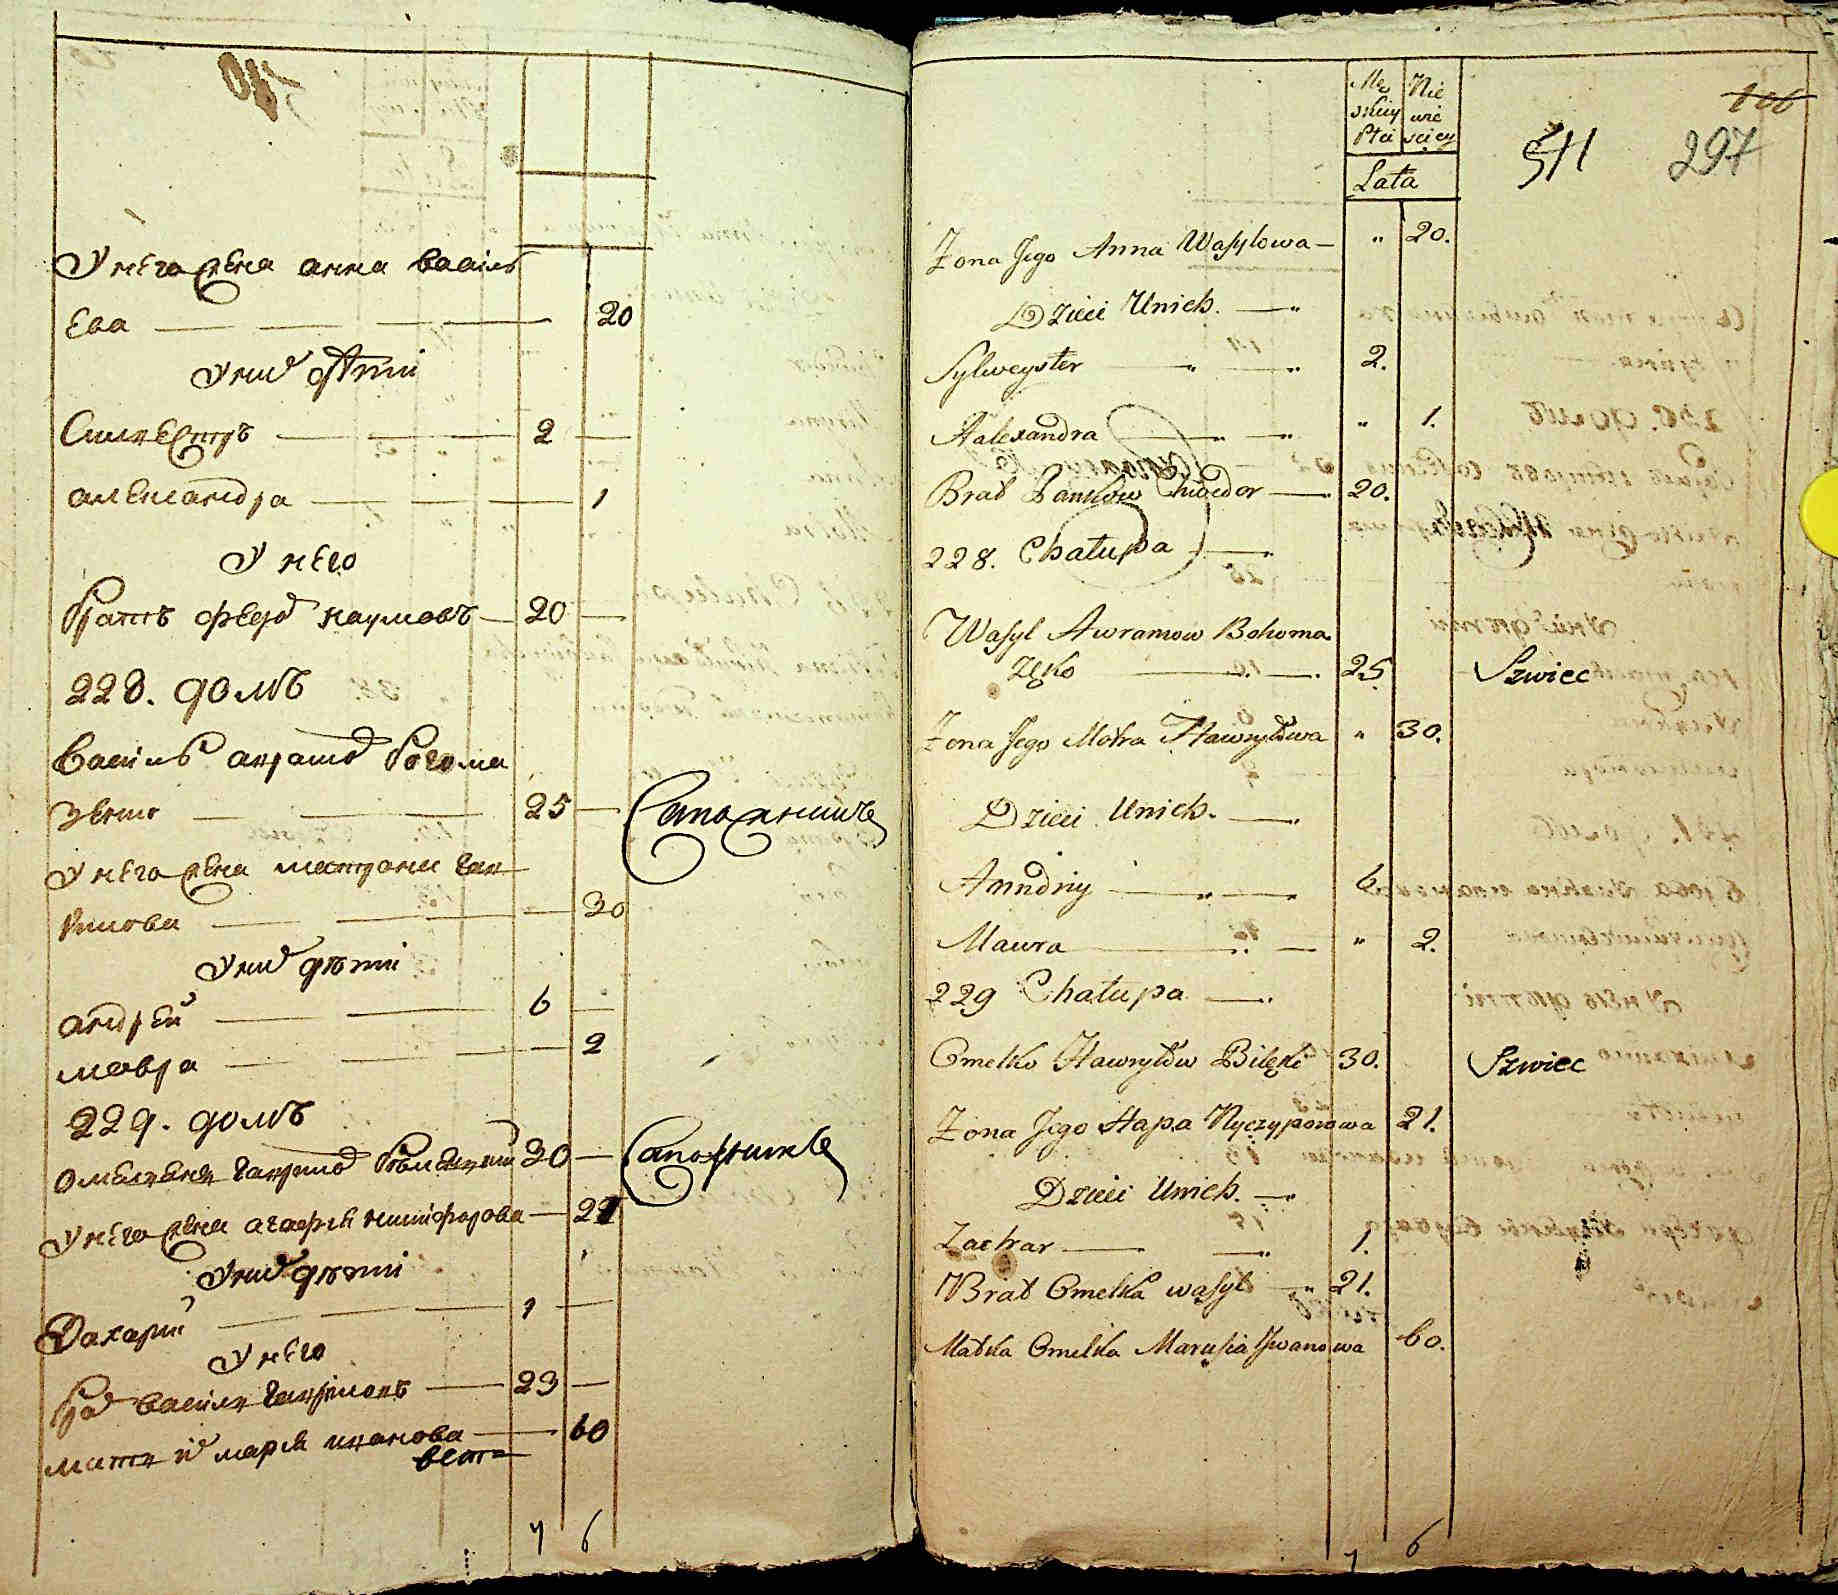 У него жена анна василь
ева — 20
У них дѣти
Силвестръ — 2 —
александра — 1
У него
братъ феод наумовъ — 20 —
228. домъ
василь аврамов богома
зенко — 25 — Сапожникъ
У него жена матрона гав
рилова — 30
У них дѣти
андрей — 6 —
мавра — 2
229. домъ
омельян гаврилов 30 — Сапожникъ
У него жена агафия никифорова — 21
У них дѣти
Захарий — 1 —
У него
брат василь гавриловъ — 23 —
мать их мария иванова — 60
7 6
Męskiey Płci Niewieściey
Lata
106
511 297
Żona Jego Anna Wasylowa — " 20.
Dzieci Unich. —
Sylweyster " — " 2.
Alexandra — " 1.
Brat Pankow Chwedor — 20.
228. Chałupa —
Wasyl Awramow Bohoma
zęko — 25. Szwiec
Żona Jego Motra Hawryłowa " 30.
Dzieci Unich. —
Anndriy — " — 6.
Mawra — " 2.
229 Chałupa —.
Omelko Hawryłow Bilęki 30. Szwiec
Żona Jego Hapa Nyczyporowa 21.
Dzieci Unich. —
Zachar — 1.
Brat Omelka wasyl — " 21.
Matka Omelka Marusia Jwanowa 60.
7 6